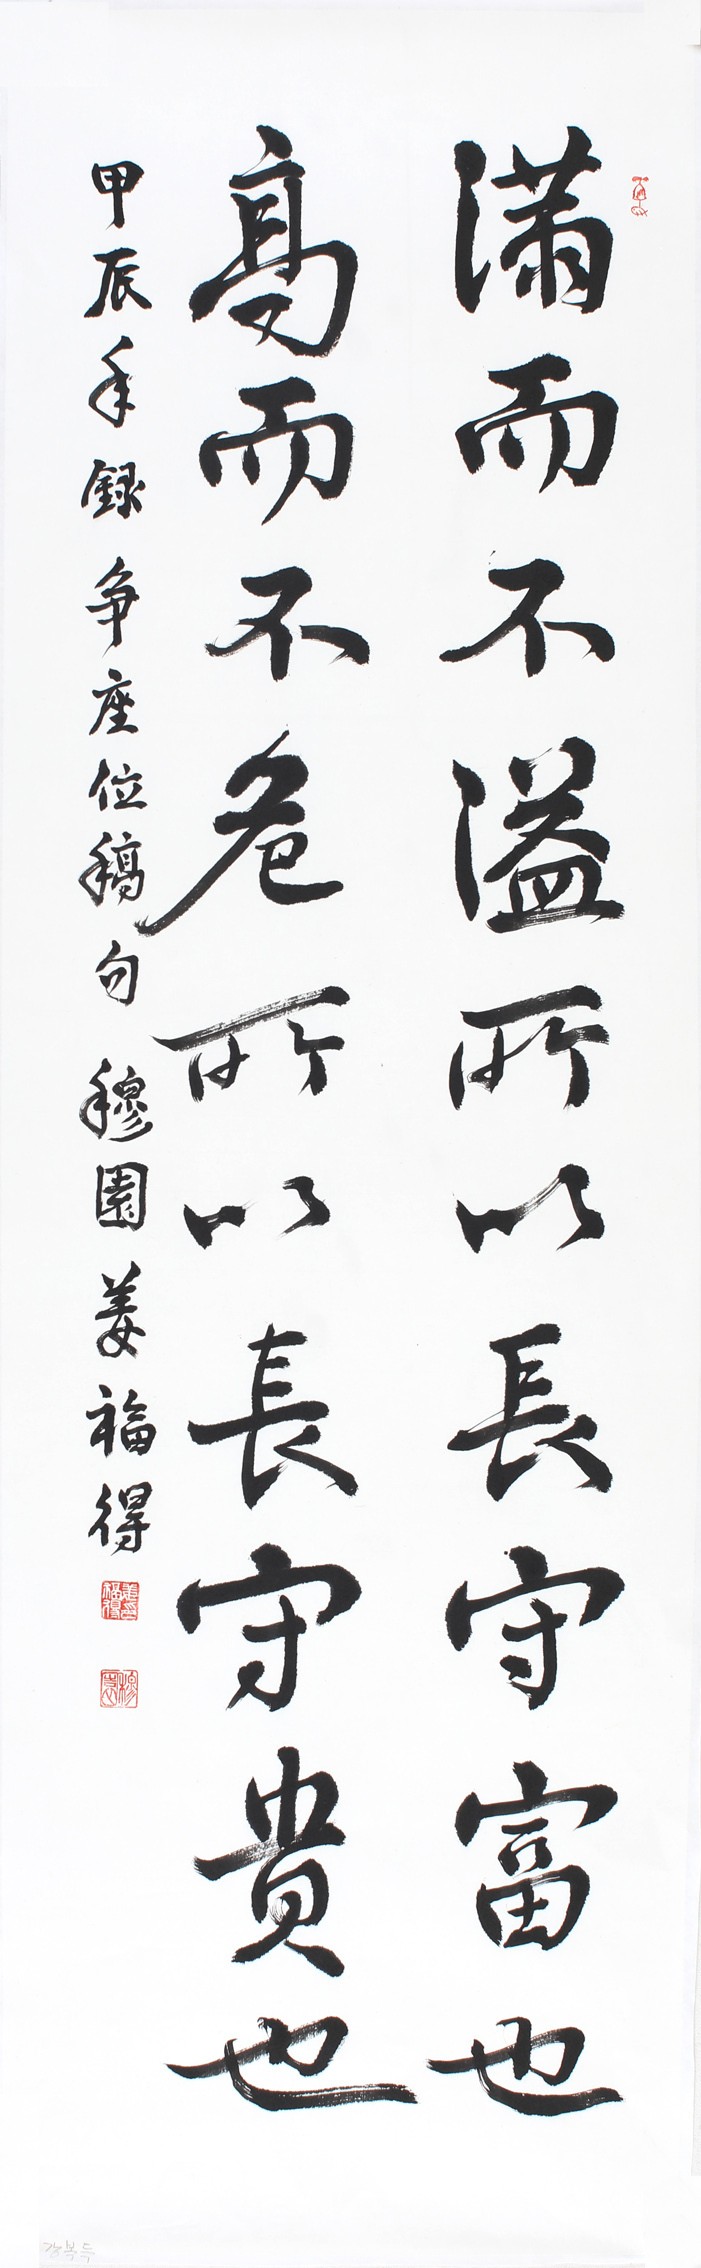 滿而不溢所以長守富也
高而不危所以長守貴也
甲辰年錄爭座位稿句 穆園姜福得
강복득